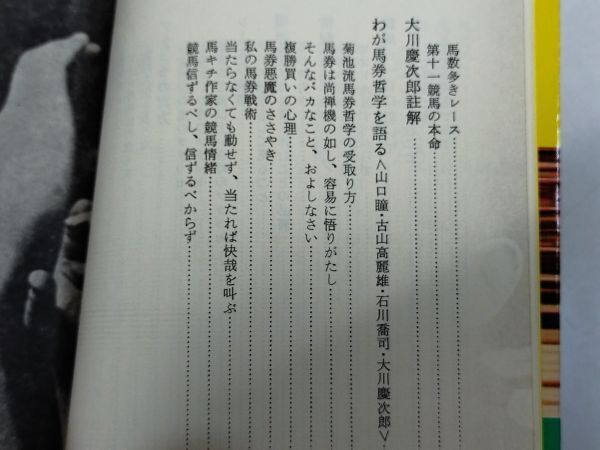 馬数多きレース
第十一競馬の本命
大川慶次郎註解
わが馬券哲学を語る〈山口瞳・古山高麗雄・石川喬司・大川慶次郎〉
菊池流馬券哲学の受取り方
馬券は尚禅機の如し、容易に悟りがたし
そんなバカなこと、およしなさい
複勝買いの心理
馬券悪魔のささやき
私の馬券戦術
当たらなくても動せず、当たれば快哉を叫ぶ
馬キチ作家の競馬情緒
競馬信ずるべし、信ずるべからず